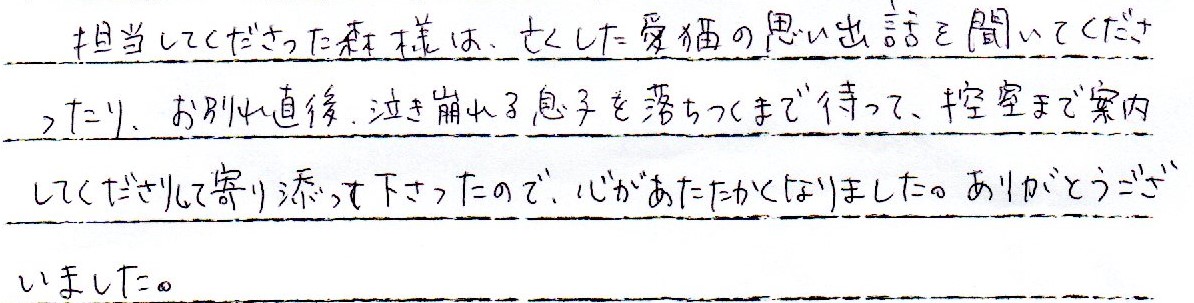 担当してくださった森様は、亡くした愛猫の思い出話を聞いてくださ
ったり、お別れ直後、泣き崩れる息子を落ちつくまで待って、控室まで案内
してくださりして寄り添って下さったので、心があたたかくなりました。ありがとうござ
いました。